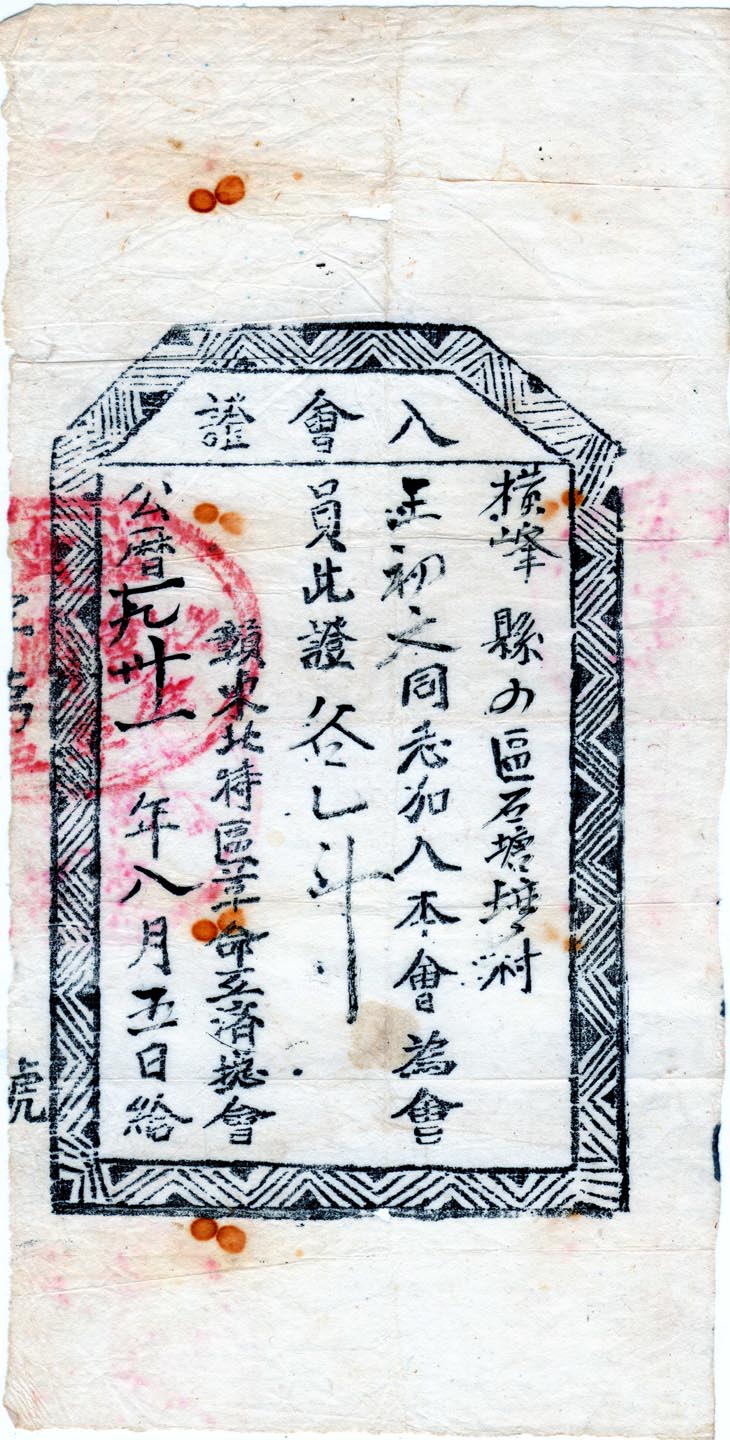 入會證
橫峰縣 區石塘 村
正初之同志加入本會為會
員此證 谷乚斗
贛東北特區革命互濟總會
公曆一九卅一年八月五日給
號